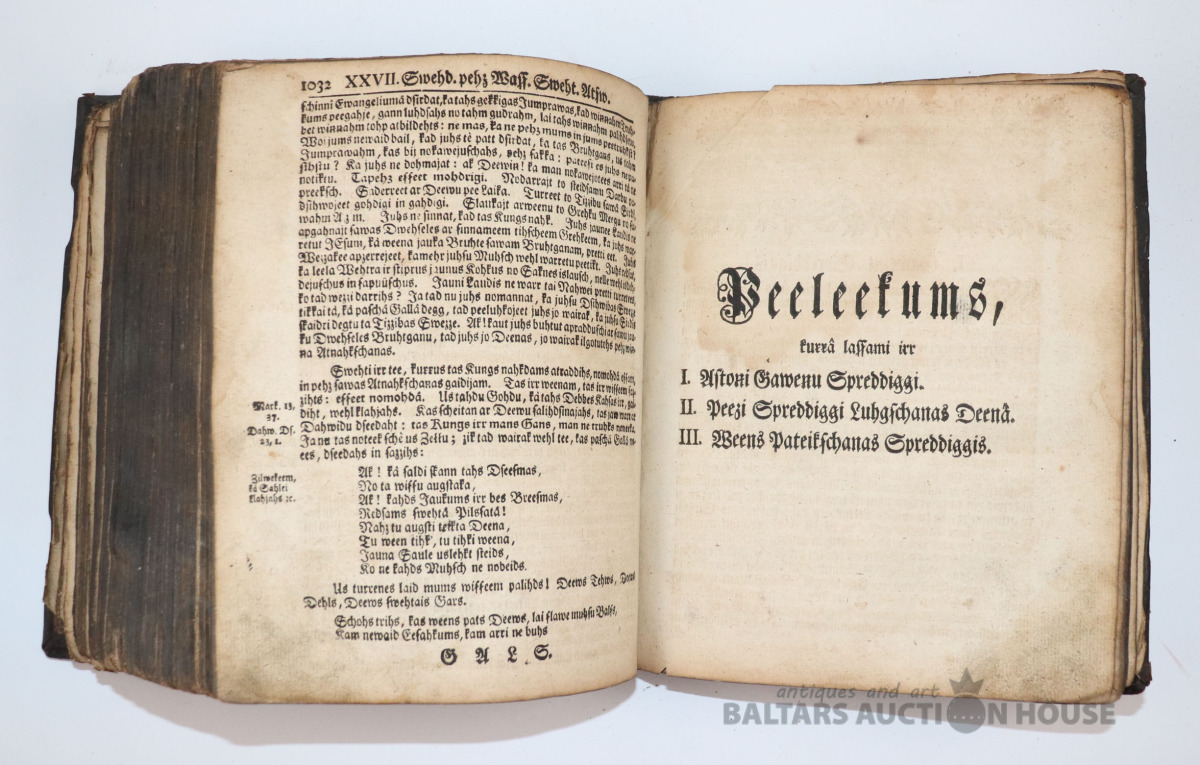 1032 XXVII. Swehd. pehz Wass. Sweht. Atsw.
schinni Ewangeliumâ dsirdat, ka tahs gekkigas Jumprawas, kad winnahm
kums peegahje, gann luhdsahs no tahm gudrahm, lai tahs winnahm
bet winnahm tohp atbildehts: ne mas, ka ne pehz mums in jums
jums newaid bail, kad juhs tê patt dsirdat, ka tas Bruhtgans, us tahm
Jumprawahm, kas bij nokawejuschahs, pehz sakka: pateesi es juhs ne
Ka juhs ne dohmajat: ak Deewin! ka man nokawejotees arri tà ne
notiktu. Tapehz esseet mohdrigi. Nodarrajt to steidsamu Darbu
preeksch. Enderreet ar Deewu pee Laika. Turreet to Tizzibu sawâ
dsihwojeet gohdigi in gahdigi. Slaukajt arweenu to Grehku
wahm Az m. Juhs ne sinnat, kad tas Kungs nahk. Juhs jaunee Laudis ne
apgahnajt sawas Dwehseles ar sinnameem tihscheem Grehkeem, ka juhs
retut JEsum, kâ weena jauka Bruhte sawam Bruhtganam, pretti eet. Juhs
Wezzakee apzerrejeet, ka mehr juhsu Muhsch wehl warretu peetikt.
ka leela Wehtra ir stiprus jaunus Kohkus no Saknes islausch,
dejuschus in sapuuschus. Jauni Laudis ne warr tai Nahwei pretti turretees,
ko tad wezzi darrihs? Ja tad nu juhs nomannat, ka juhsu Dsihwibas Swezze
tikkai tà, kâ paschâ Gallâ degg, tad peeluhkojeet juhs jo wairak, ka juhsu
skaidri degtu ta Tizzibas Swezze. Ak! kaut juhs buhtut
ku Dwehseles Bruhtganu, tad juhs jo Deenas, jo wairak ilgotutehs pehz
na Atnahkschanas.
Swehti irr tee, kurrus tas Kungs nahkdams atraddihs, nomohdâ essam,
in pehz sawas Atnahkschanas gaidijam. Tas irr weenam, tas irr wisseem
zihts: esseet nomohdâ. Us tahdu Gohdu, kâ tahs Debbes Kahsus irr,
diht, wehl klahjahs. Kas scheitan ar Deewu salihdsinajahs, tas jau
Dahwidu dseedaht: tas Kungs irr mans Gans, man ne truhks neneeka.
Ja nu tas noteek schê us Zellu; zik tad wairak wehl tee, kas paschâ Gallâ
ees, dseedahs in sazzihs:
Mark. 13,
37.
Dahw. Ds.
23, 1.
Ak! kâ saldi skann tahs Dseesmas,
No ta wissu augstaka,
Ak! kahds Jaukums irr bes Breesmas,
Redsams swehtâ Pilsatâ!
Nahz tu augsti teikta Deena,
Tu ween tihk', tu tihki weena,
Jauna Saule uslehkt steids,
Ko ne kahds Muhsch ne nobeids.
Zilwekeem,
kâ Sahlei
klahjahs ꝛc.
Us turrenes laid mums wisseem palihds! Deews Tehws, Deews
Dehls, Deews swehtais Gars.
Schohs trihs, kas weens pats Deews, lai slawe muhsu Balss,
Kam newaid Eesahkums, kam arri ne buhs
G A L S.
Peeleekums,
kurrâ lassami irr
I. Astoni Gawenu Spreddiggi.
II. Peezi Spreddiggi Luhgschanas Deenâ.
III. Weens Pateikschanas Spreddiggis.
antiques and art
BALTARS AUCTION HOUSE